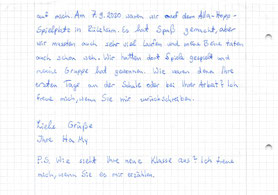 auf mich. Am 7.9.2020 waren wir auf dem Alla-Hopp-
Spielplatz in Rülzheim. Es hat Spaß gemacht, aber
wir mussten auch sehr viel laufen und meine Beine taten
auch schon weh. Wir hatten dort Spiele gespielt und
meine Gruppe hat gewonnen. Wie waren denn Ihre
ersten Tage an der Schule oder bei Ihrer Arbeit? Ich
freue mich, wenn Sie mir zurückschreiben.
Liebe Grüße
Ihre Ha My
P.S. Wie sieht Ihre neue Klasse aus? Ich freue
mich, wenn Sie es mir erzählen.